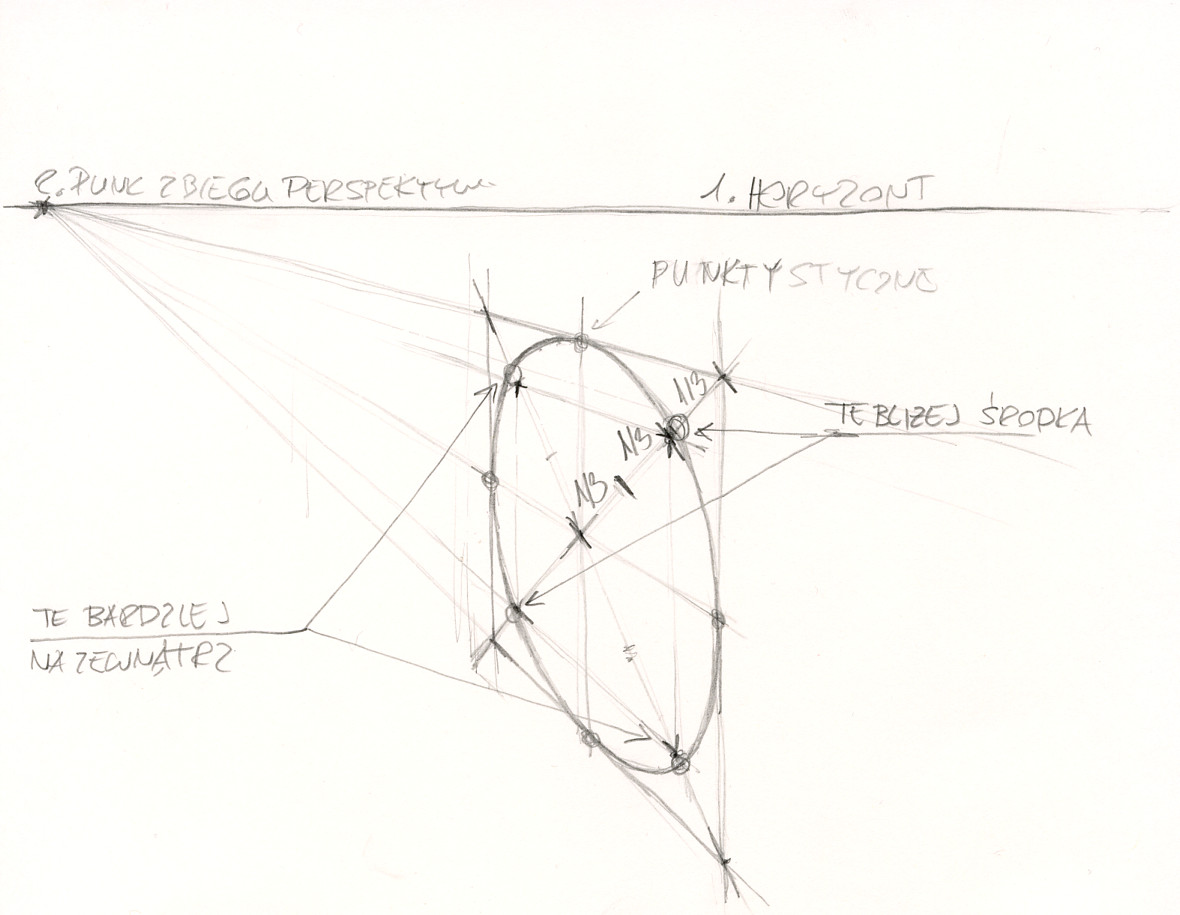 2. PUNK ZBIEGU PERSPEKTYW
1. HORYZONT
PUNKTY STYCZNE
1/3
TE BLIZEJ ŚRODKA
1/3
1/3
TE BARDZIEJ
NA ZEWNĄTRZ